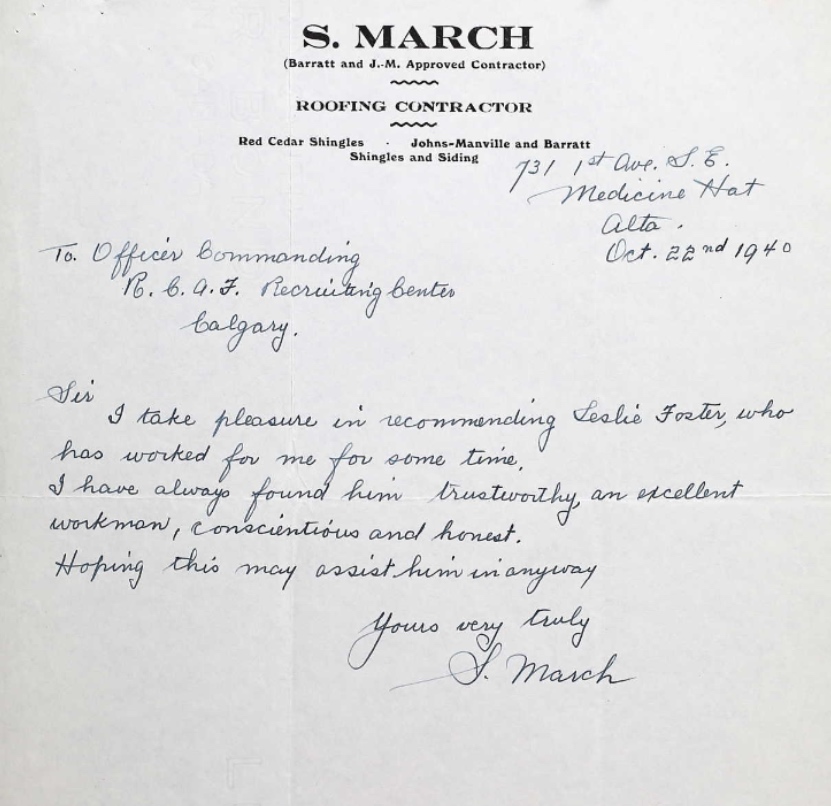 S. MARCH
(Barratt and J.-M. Approved Contractor)
ROOFING CONTRACTOR
Red Cedar Shingles · Johns-Manville and Barratt
Shingles and Siding
731 1st Ave. S. E.
Medicine Hat
Alta.
Oct. 22nd 1940
To. Officer Commanding
R. C. A. F. Recruiting Center
Calgary.
Sir
I take pleasure in recommending Leslie Foster, who
has worked for me for some time.
I have always found him trustworthy, an excellent
workman, conscientious and honest.
Hoping this may assist him in anyway
Yours very truly
S. March